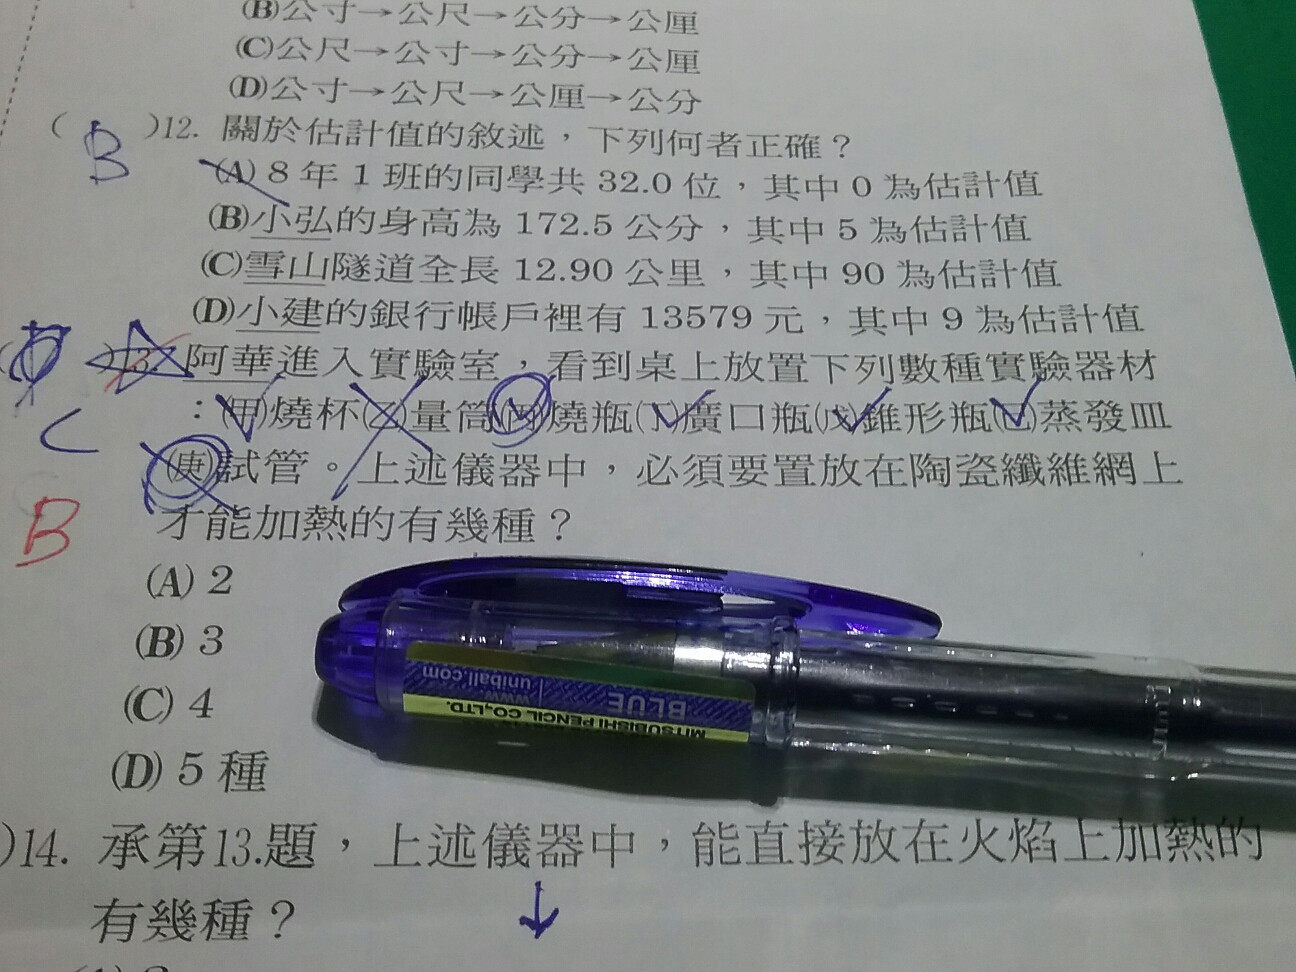 (B)公寸→公尺→公分→公厘
(C)公尺→公寸→公分→公厘
(D)公寸→公尺→公厘→公分
( B )12. 關於估計值的敘述，下列何者正確？
(A) 8 年 1 班的同學共 32.0 位，其中 0 為估計值
(B)小弘的身高為 172.5 公分，其中 5 為估計值
(C)雪山隧道全長 12.90 公里，其中 90 為估計值
(D)小建的銀行帳戶裡有 13579 元，其中 9 為估計值
)13. 阿華進入實驗室，看到桌上放置下列數種實驗器材
：(甲)燒杯(乙)量筒(丙)燒瓶(丁)廣口瓶(戊)錐形瓶(己)蒸發皿
C
(庚)試管。上述儀器中，必須要置放在陶瓷纖維網上
B
才能加熱的有幾種？
(A) 2
(B) 3
(C) 4
(D) 5 種
uniball.com
www.
BLUE
MITSUBISHI PENCIL CO.,LTD.
)14. 承第13.題，上述儀器中，能直接放在火焰上加熱的
有幾種？